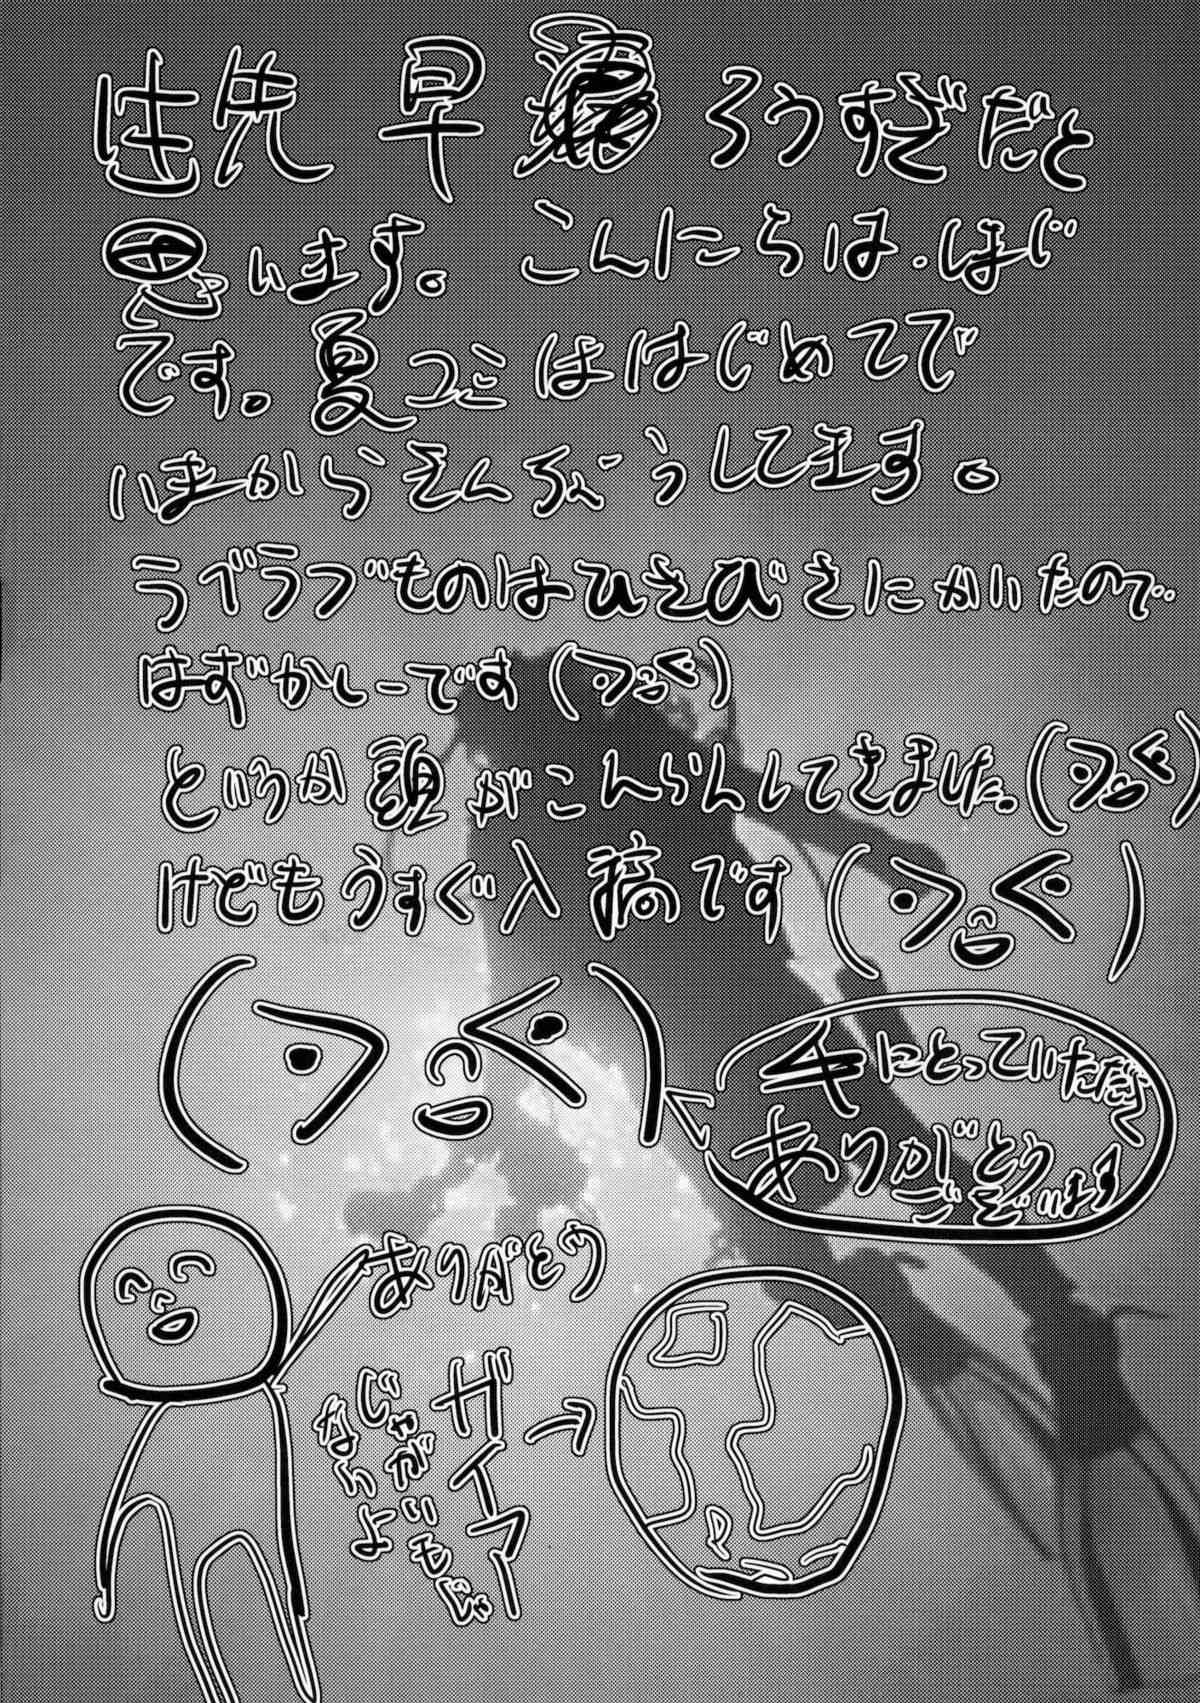 早 ろうすぎだと
思います。こんにちは.はじ
です。夏コミははじめてで
いまからぞんぶうしてます。
ラブラブものはひさびさにかいたので..
はずかしーです
というか頭がこんらんしてきました。
けどもうすぐ入稿です
手にとっていただ
ありがとう
ございます
ありがとう
ガイアー→
じゃがいもじゃ
ないよ